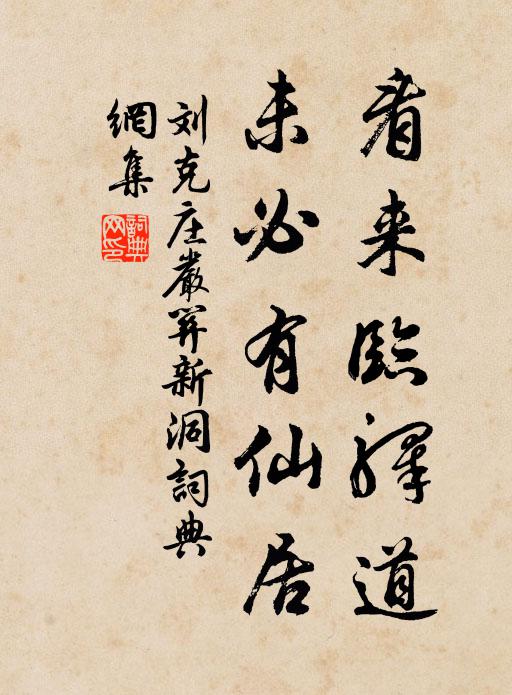 看来临驿道
未必有仙居
刘克庄严关新洞词典
网集
词典网印